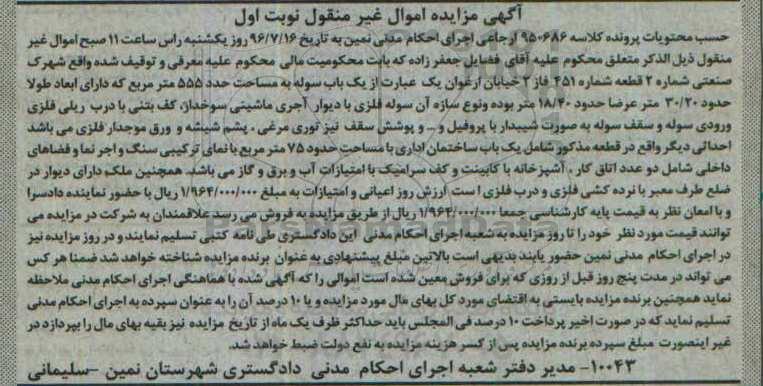 آگهی مزایده اموال غیر منقول نوبت اول
حسب محتویات پرونده کلاسه ۹۵۰۶۸۶ ارجاعی اجرای احکام مدنی نمین به تاریخ ۹۶/۷/۱۶ روز یکشنبه راس ساعت ۱۱ صبح اموال غیر
منقول ذیل الذکر متعلق محکوم علیه آقای فضایل جعفر زاده که بابت محکومیت مالی محکوم علیه معرفی و توقیف شده واقع شهرک
صنعتی شماره ۲ قطعه شماره ۴۵۱ فاز ۲ خیابان ارغوان یک عبارت از یک باب سوله به مساحت حدد ۵۵۵ متر مربع که دارای ابعاد طولا
حدود ۳۰/۲۰ متر عرضا حدود ۱۸/۴۰ متر بوده ونوع سازه آن سوله فلزی با دیوار آجری ماشینی سوخداز، کف بتنی با درب ریلی فلزی
ورودی سوله و سقف سوله به صورت شیبدار با پروفیل و ... و پوشش سقف نیز توری مرغی ، پشم شیشه و ورق موجدار فلزی می باشد
احداثی دیگر واقع در قطعه مذکور شامل یک باب ساختمان اداری با مساحت حدود ۷۵ متر مربع با نمای ترکیبی سنگ و اجر نما و فضاهای
داخلی شامل دو عدد اتاق کار ، آشپزخانه با کابینت و کف سرامیک با امتیازات آب و برق و گاز می باشد. همچنین ملک دارای دیوار در
ضلع طرف معبر با نرده کشی فلزی و درب فلزی است ارزش روز اعیانی و امتیازات به مبلغ ۱/۹۶۴/۰۰۰/۰۰۰ ریال با حضور نماینده دادسرا
و با امعان نظر به قیمت پایه کارشناسی جمعا ۱/۹۶۴/۰۰۰/۰۰۰ ریال از طریق مزایده به فروش می رسد علاقمندان به شرکت در مزایده می
توانند قیمت مورد نظر خود را تا روز مزایده به شعبه اجرای احکام مدنی این دادگستری طی نامه کتبی تسلیم نمایند و در روز مزایده نیز
در اجرای احکام مدنی نمین حضور یابند بدیهی است بالاتین مبلغ پیشنهادی به عنوان برنده مزایده شناخته خواهد شد ضمنا هر کس
می تواند در مدت پنج روز قبل از روزی که برای فروش معین شده است اموالی را که آگهی شده با هماهنگی اجرای احکام مدنی ملاحظه
نماید همچنین برنده مزایده بایستی به اقتضای مورد کل بهای مال مورد مزایده و یا ۱۰ درصد آن را به عنوان سپرده به اجرای احکام مدنی
تسلیم نماید که در صورت اخیر پرداخت ۱۰ درصد فی المجلس باید حداکثر ظرف یک ماه از تاریخ مزایده نیز بقیه بهای مال را بپردازد در
غیر اینصورت مبلغ سپرده برنده مزایده پس از کسر هزینه مزایده به نفع دولت ضبط خواهد شد.
۱۰۰۴۳- مدیر دفتر شعبه اجرای احکام مدنی دادگستری شهرستان نمین -سلیمانی